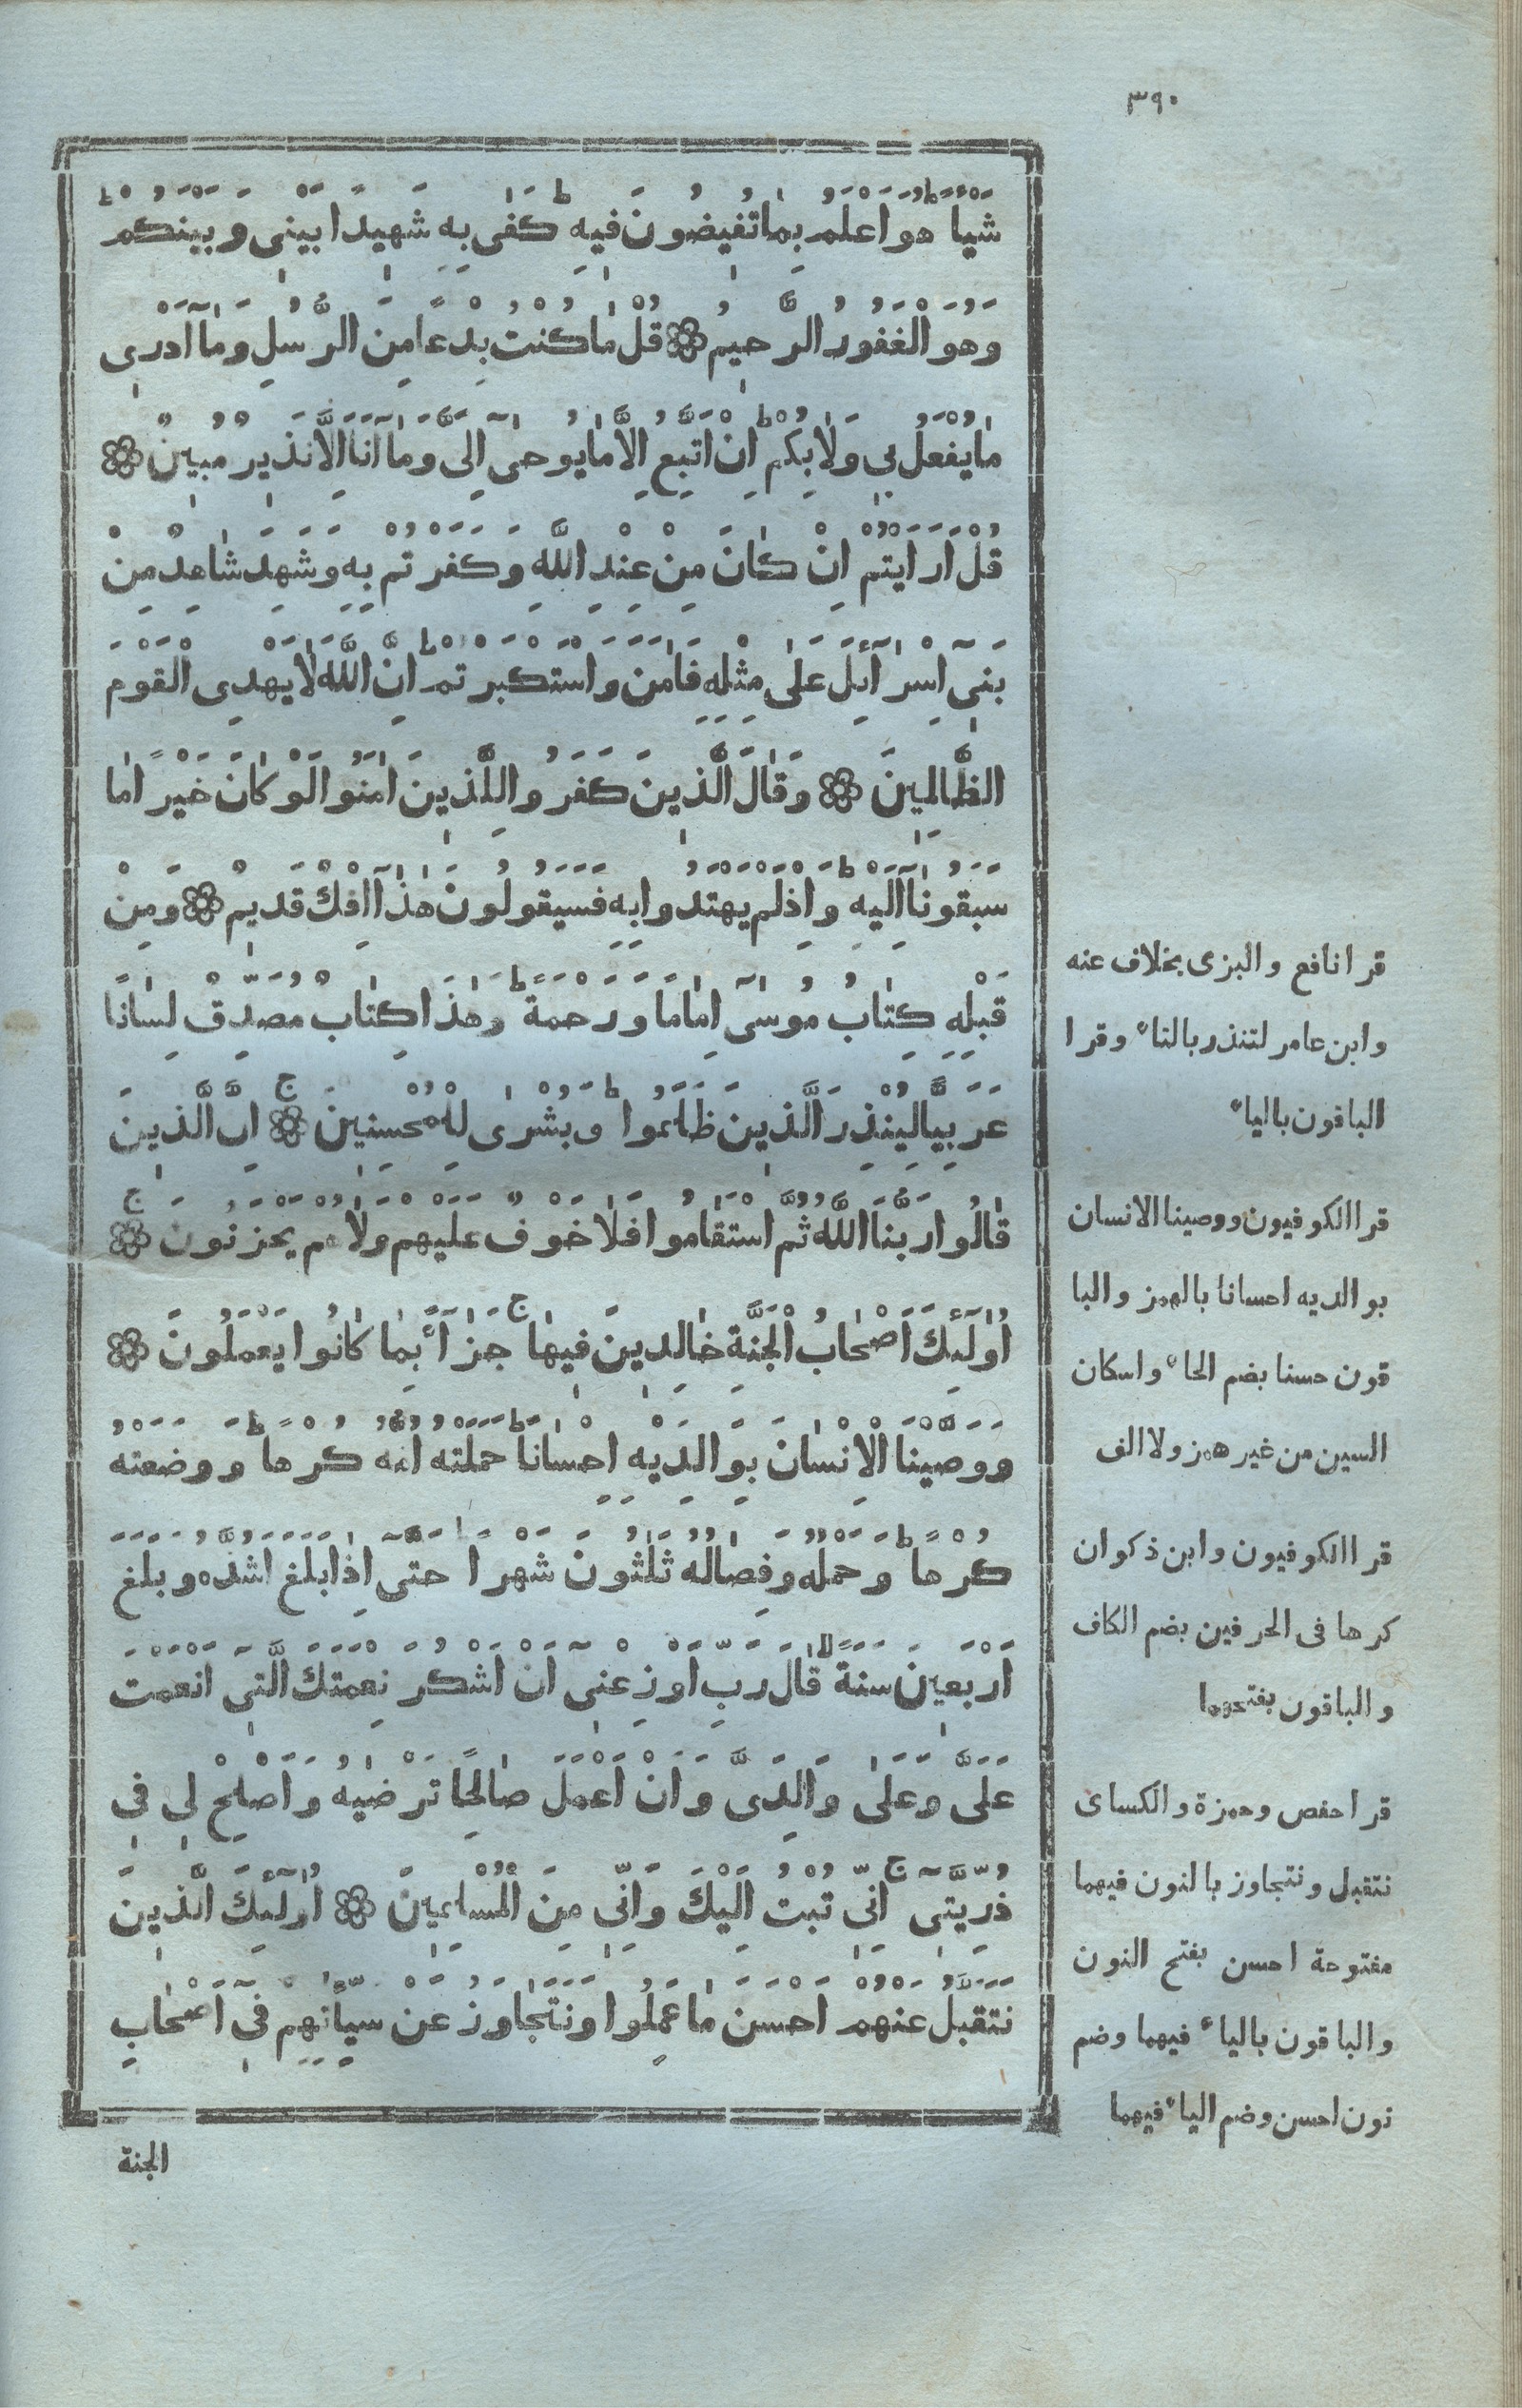 ٣٩٠
شَيْـًٔاؕ هُوَ اَعْلَمُ بِمَا تُفيضُونَ فيهِؕ كَفٰى بِهٖ شَهيدًا بَيْنى وَبَيْنَكُمْؕ
وَهُوَ الْغَفُورُ الرَّحيمُ ۞ قُلْ مَا كُنْتُ بِدْعًا مِنَ الرُّسُلِ وَمَٓا اَدْرى
مَا يُفْعَلُ بى وَلَا بِكُمْؕ اِنْ اَتَّبِعُ اِلَّا مَا يُوحٰٓى اِلَىَّ وَمَٓا اَنَا۬ اِلَّا نَذيرٌ مُبينٌ ۞
قُلْ اَرَاَيْتُمْ اِنْ كَانَ مِنْ عِنْدِ اللّٰهِ وَكَفَرْتُمْ بِهٖ وَشَهِدَ شَاهِدٌ مِنْ
بَنىٓ اِسْرَٓائلَ عَلٰى مِثْلِهٖ فَاٰمَنَ وَاسْتَكْبَرْتُمْؕ اِنَّ اللّٰهَ لَا يَهْدِى الْقَوْمَ
الظَّالِمينَ ۞ وَقَالَ الَّذينَ كَفَرُوا لِلَّذينَ اٰمَنُوا لَوْ كَانَ خَيْرًا مَا
سَبَقُونَٓا اِلَيْهِؕ وَاِذْ لَمْ يَهْتَدُوا بِهٖ فَسَيَقُولُونَ هٰذَٓا اِفْكٌ قَديمٌ ۞ وَمِنْ
قَبْلِهٖ كِتَابُ مُوسٰٓى اِمَامًا وَرَحْمَةًؕ وَهٰذَا كِتَابٌ مُصَدِّقٌ لِسَانًا
عَرَبِيًّا لِيُنْذِرَ الَّذينَ ظَلَمُواؕ وَبُشْرٰى لِلْمُحْسِنينَۚ ۞ اِنَّ الَّذينَ
قَالُوا رَبُّنَا اللّٰهُ ثُمَّ اسْتَقَامُوا فَلَا خَوْفٌ عَلَيْهِمْ وَلَا هُمْ يَحْزَنُونَۚ ۞
اُولٰٓئِكَ اَصْحَابُ الْجَنَّةِ خَالِدينَ فيهَاۚ جَزَٓاءً بِمَا كَانُوا يَعْمَلُونَ ۞
وَوَصَّيْنَا الْاِنْسَانَ بِوَالِدَيْهِ اِحْسَانًاؕ حَمَلَتْهُ اُمُّهُ كُرْهًاؕ وَوَضَعَتْهُ
كُرْهًاؕ وَحَمْلُهُ وَفِصَالُهُ ثَلٰثُونَ شَهْرًا حَتّٰٓى اِذَا بَلَغَ اَشُدَّهُ وَبَلَغَ
اَرْبَعينَ سَنَةًۙ قَالَ رَبِّ اَوْزِعْنىٓ اَنْ اَشْكُرَ نِعْمَتَكَ الَّتىٓ اَنْعَمْتَ
عَلَىَّ وَعَلٰى وَالِدَىَّ وَاَنْ اَعْمَلَ صَالِحًا تَرْضٰيهُ وَاَصْلِحْ لى فى
ذُرِّيَّتىٓۚ اِنّى تُبْتُ اِلَيْكَ وَاِنّى مِنَ الْمُسْلِمينَ ۞ اُولٰٓئِكَ الَّذينَ
نَتَقَبَّلُ عَنْهُمْ اَحْسَنَ مَا عَمِلُوا وَنَتَجَاوَزُ عَنْ سَيِّـَٔاتِهِمْ فىٓ اَصْحَابِ
الجنة
قرا نافع والبزى بخلاف عنه
وابن عامر لتنذر بالتاء وقرا
الباقون بالياء
قرا الكوفيون ووصينا الانسان
بوالديه احسانا بالهمز والبا
قون حسنا بضم الحاء واسكان
السين من غير همز ولا الف
قرا الكوفيون وابن ذكوان
كرها فى الحرفين بضم الكاف
والباقون بفتحهما
قرا حفص وحمزة والكساى
نتقبل ونتجاوز بالنون فيهما
مفتوحة احسن بفتح النون
والباقون بالياء فيهما وضم
نون احسن وضم الياء فيهما